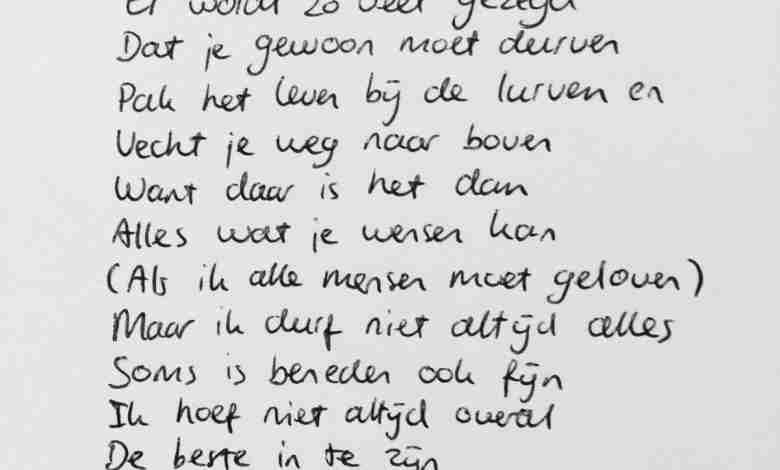 Er wordt zo veel gezegd
Dat je gewoon moet durven
Pak het leven bij de lurven en
Vecht je weg naar boven
Want daar is het dan
Alles wat je wensen kan
(Als ik alle mensen moet geloven)
Maar ik durf niet altijd alles
Soms is beneden ook fijn
Ik hoef niet altijd overal
De beste in te zijn